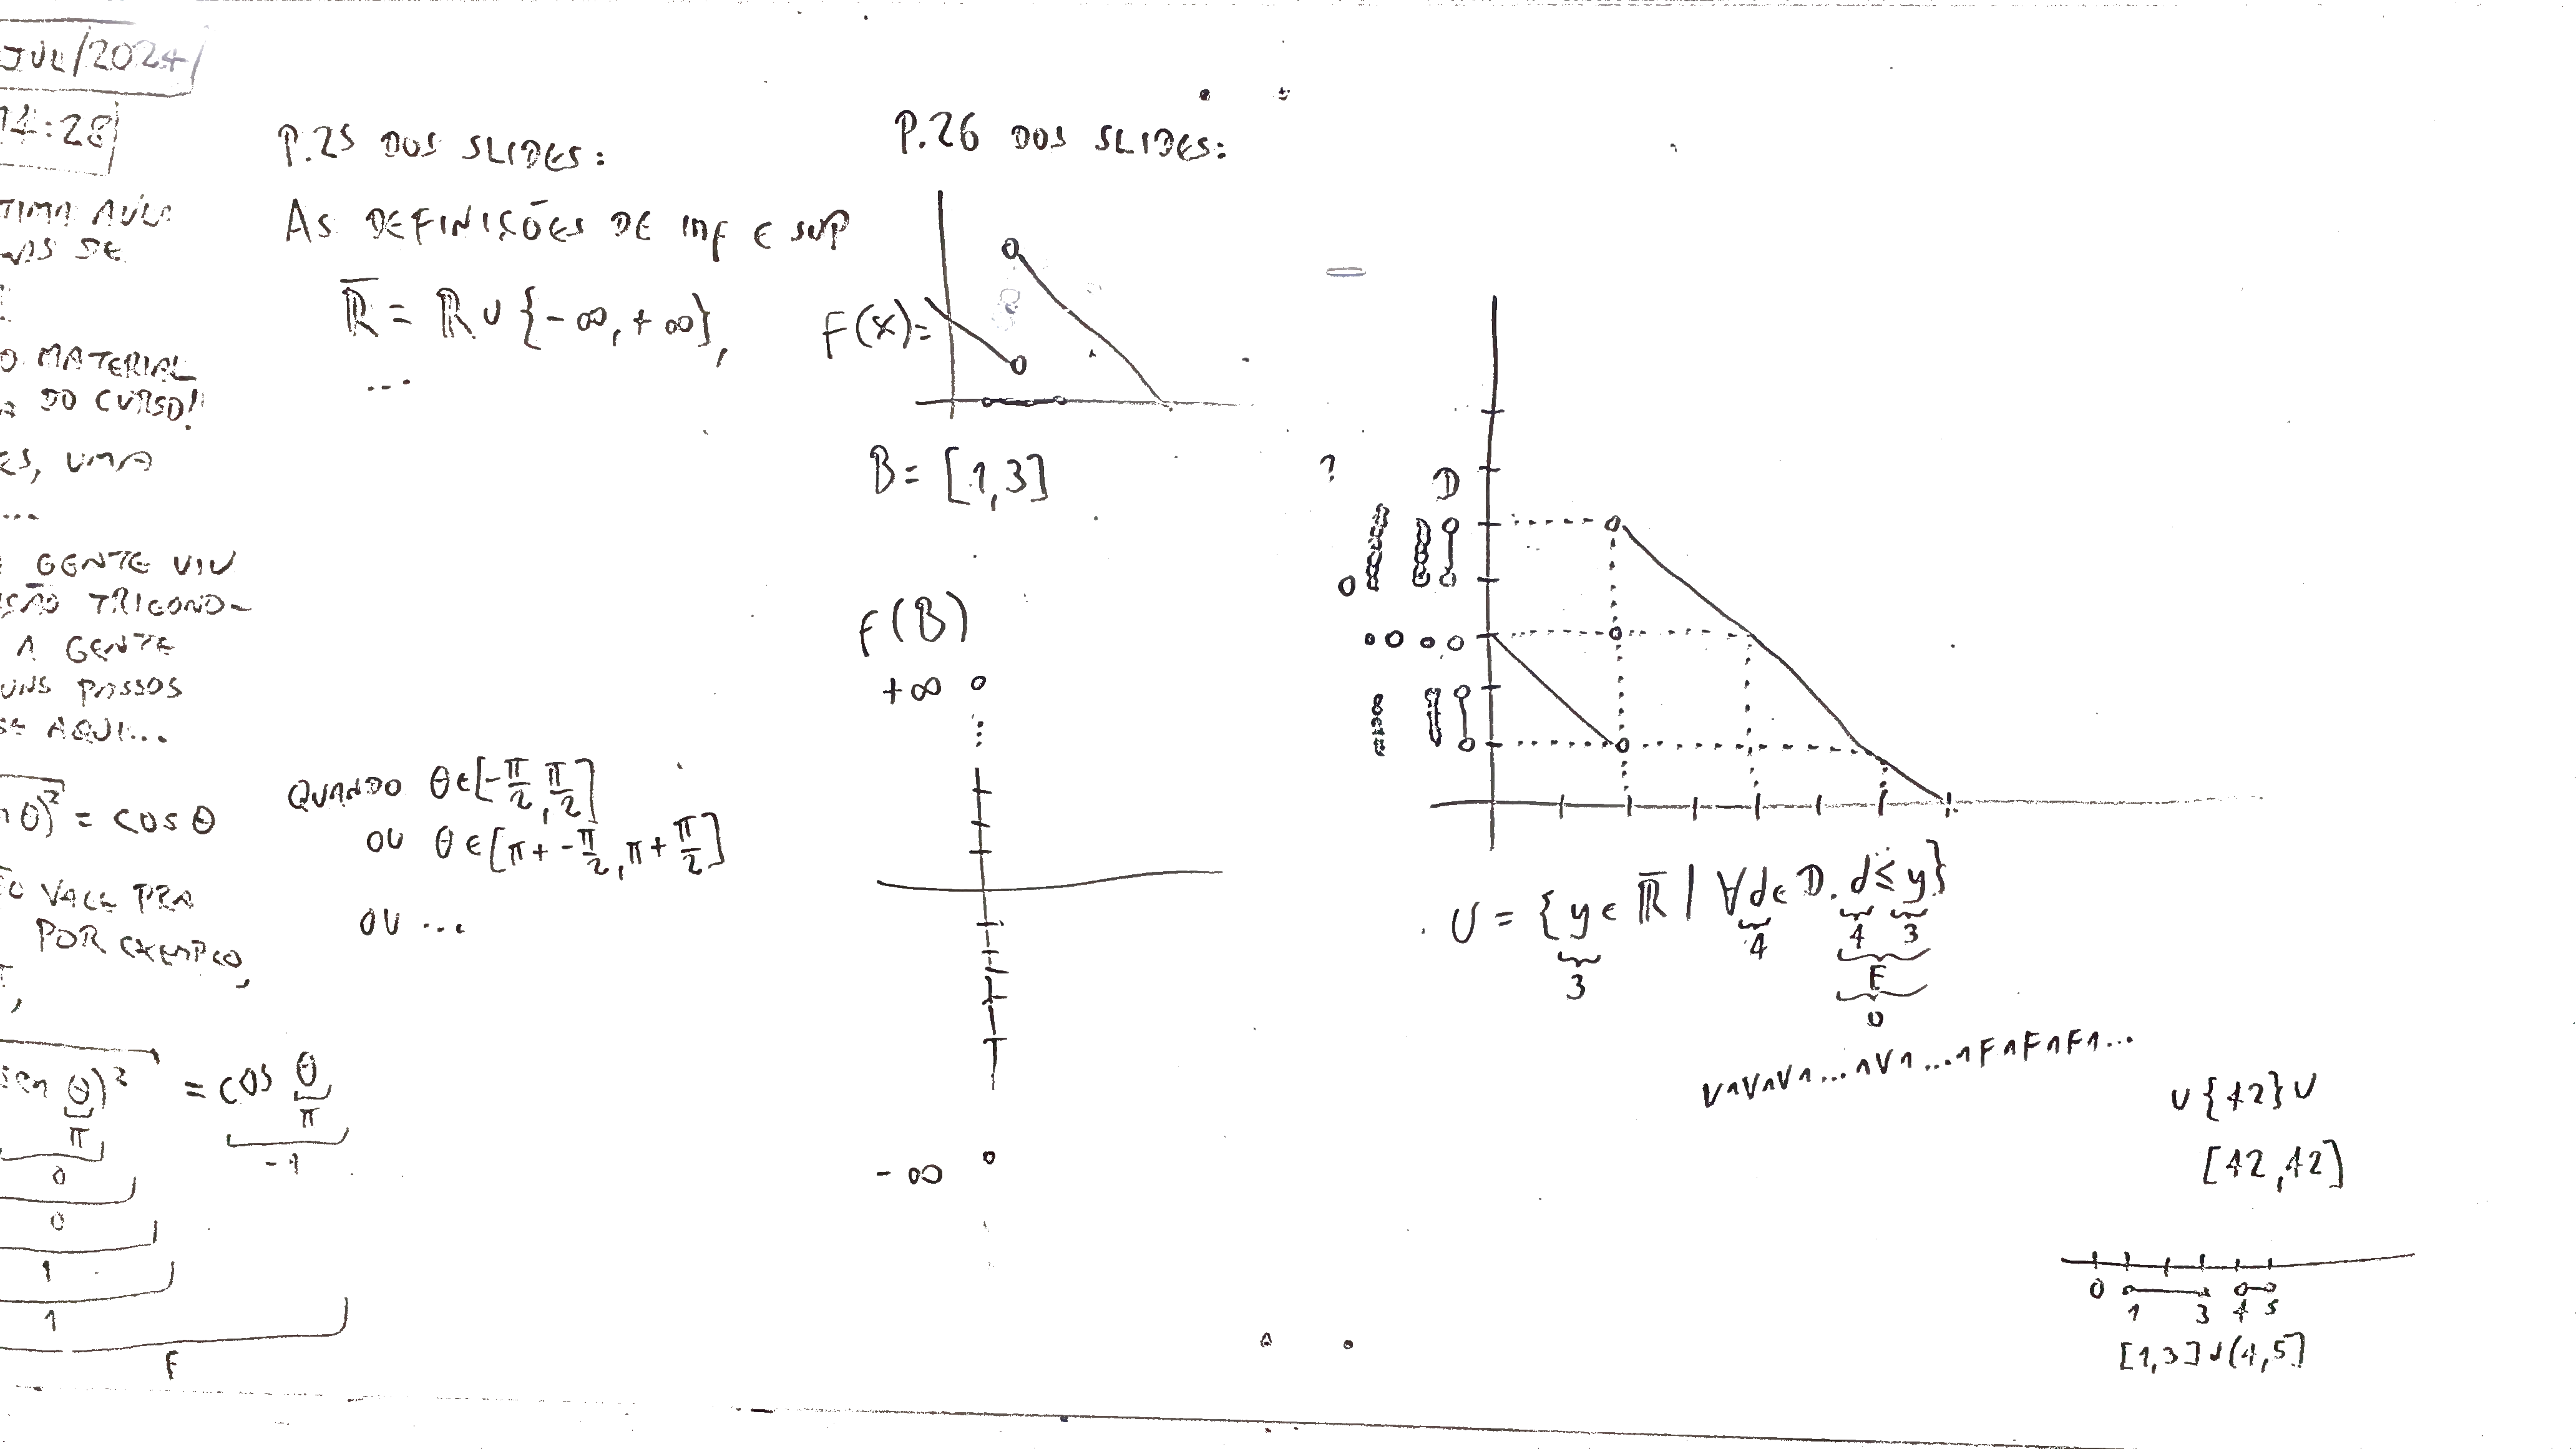 JUL/2024
14:28
TIMA AULA
DE
O MATERIAL
DO CURSO!
ES, UMA
...
E GENTE VIU
SÃO TRIGONO-
A GENTE
UNS PASSOS
SE AQUI...
θ)² = COS θ
VALE PRA
POR EXEMPLO,
sen θ)² = cos θ
π π
0 -1
0
1
1
F
P.25 DOS SLIDES:
AS DEFINIÇÕES DE inf E sup
ℝ̅ = ℝ ∪ {-∞, +∞},
...
QUANDO θ∈[-π/2, π/2]
OU θ∈[π+-π/2, π+π/2]
OU ...
P.26 DOS SLIDES:
F(x)=
B= [1,3]
F(B)
+∞
- ∞
? D
U = {y ∈ ℝ̅ | ∀d∈D. d≤y}
3 4 4 3
F
V∧V∧V∧...∧V∧...∧F∧F∧F∧...
∪{42}∪
[42,42]
0 1 3 4 5
[1,3]∪(4,5]